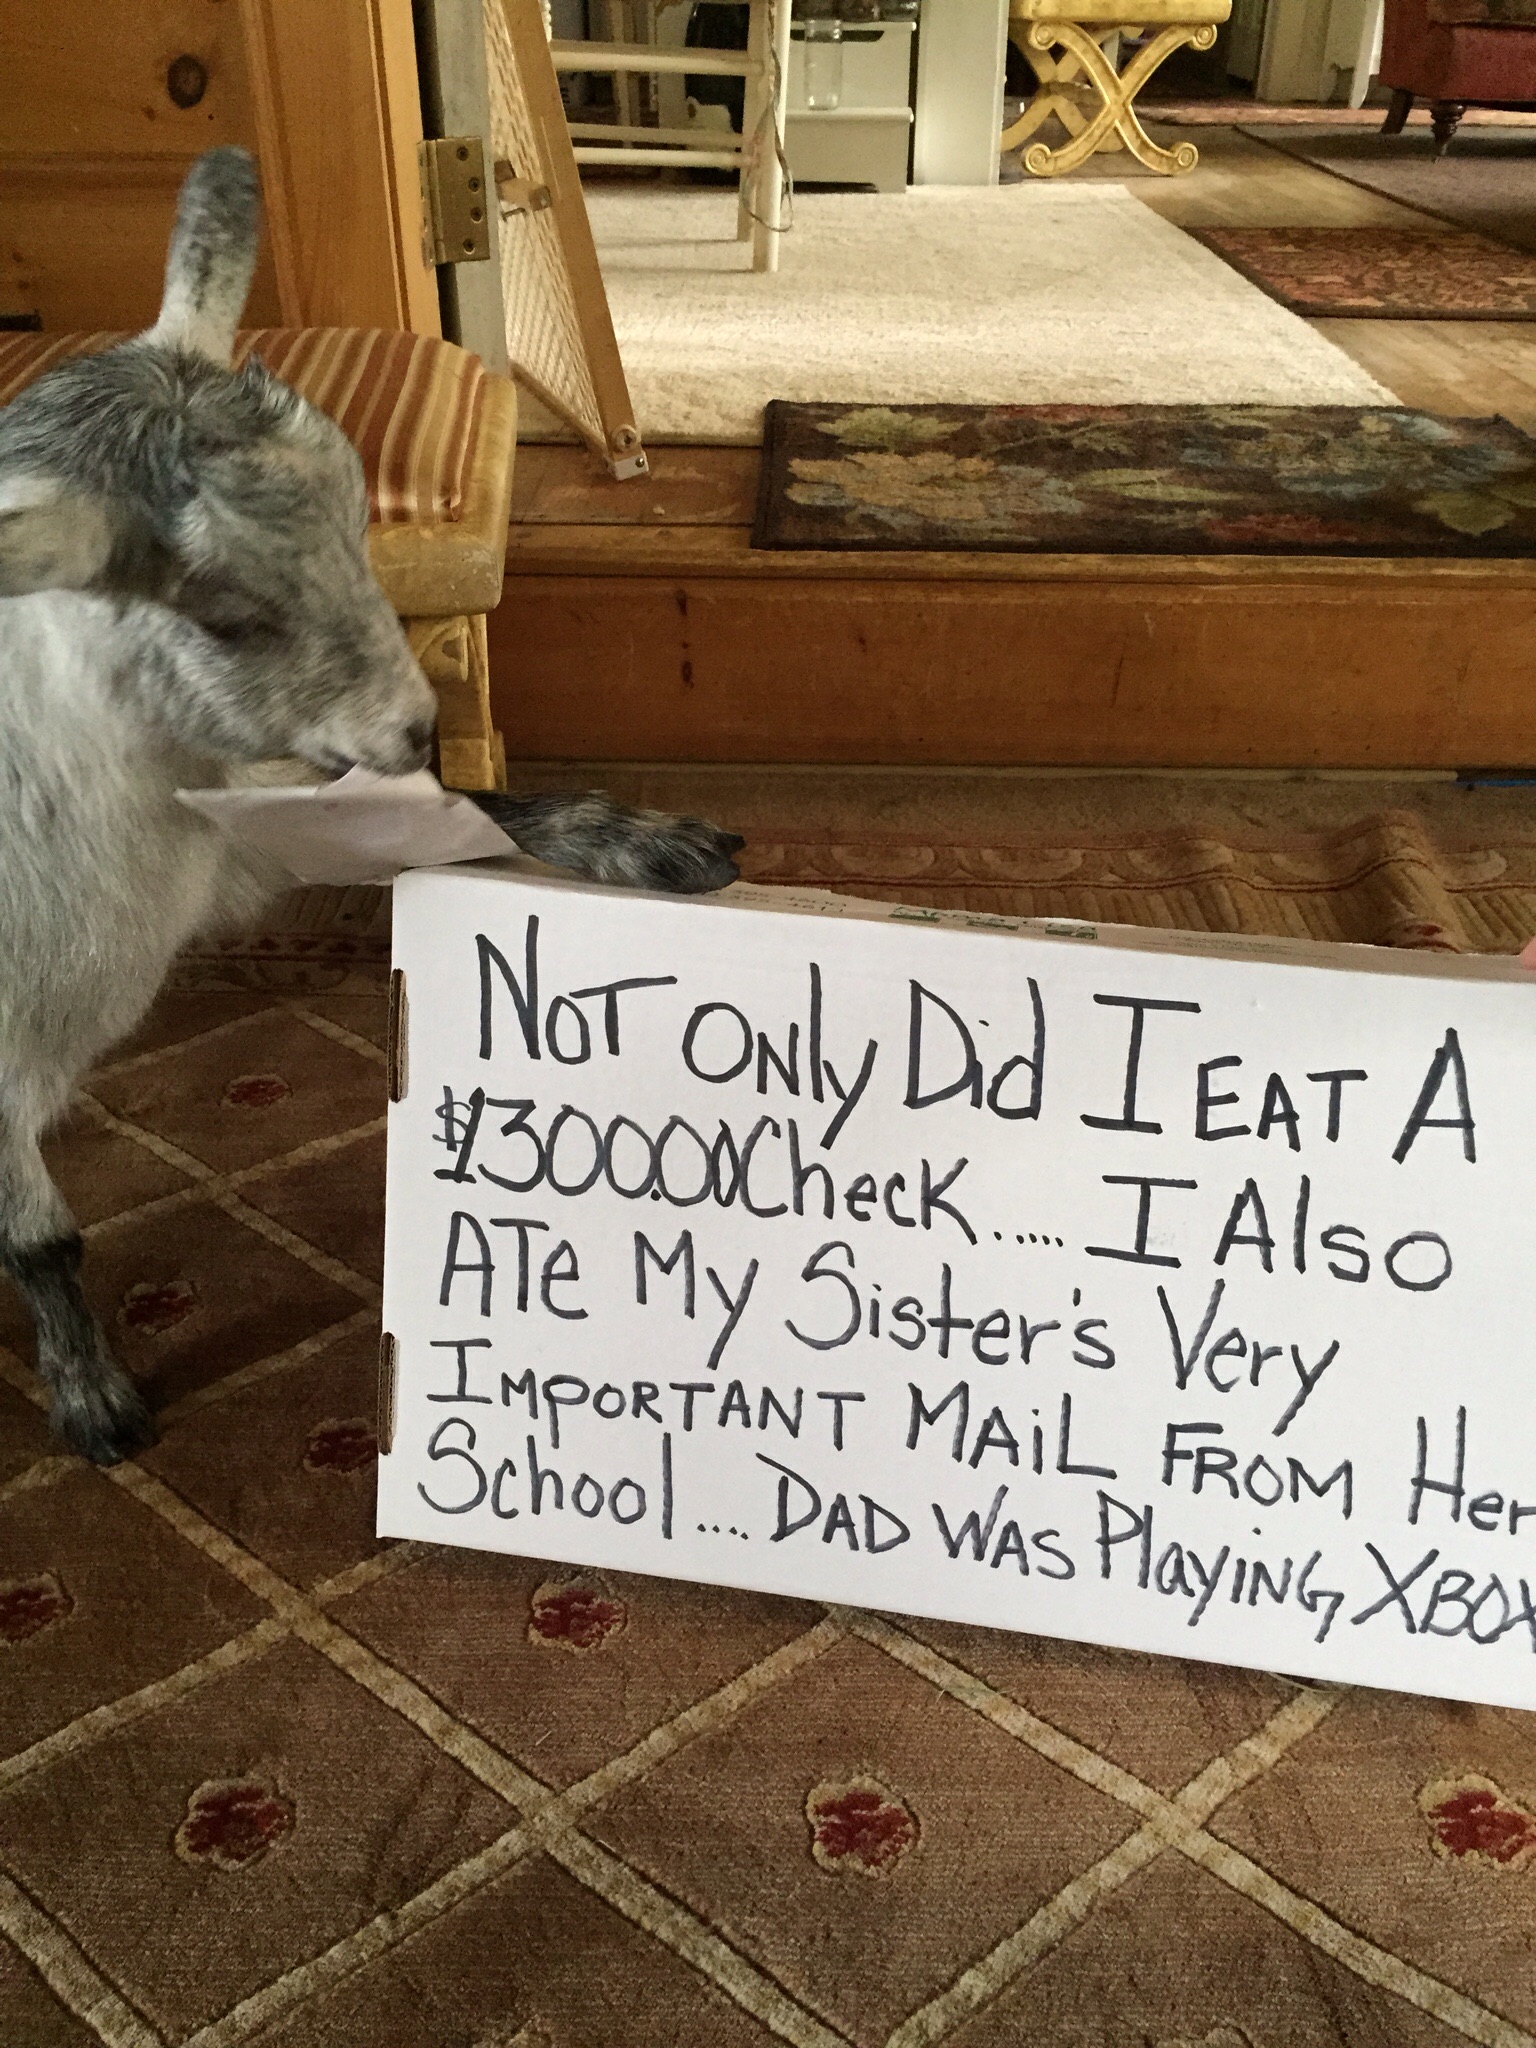 Not Only Did I EAT A
$1300.00 Check..... I Also
ATe My Sister's Very
Important MAiL From Her
School.... DAD WAS Playing XBOX